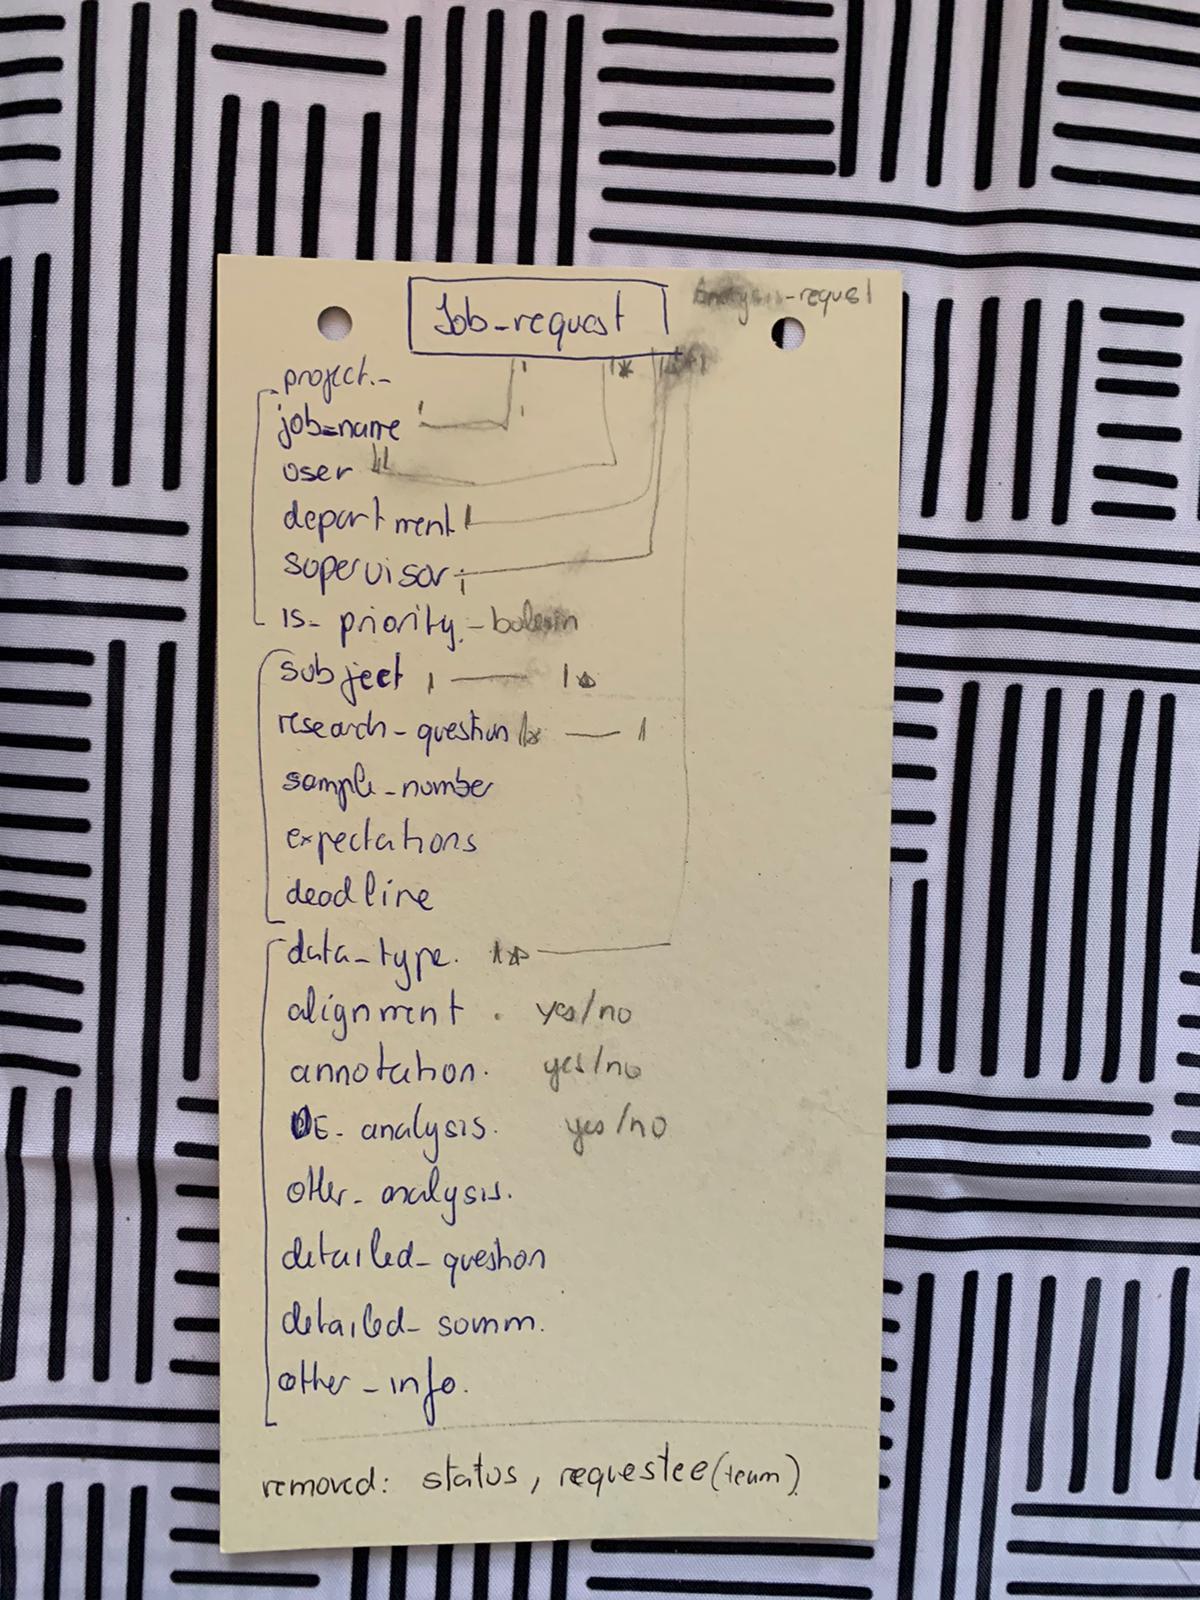 Job-request
-request
project.-
job-name
user
department 1
supervisor 1
is-priority.-
subject 1 — 1*
research-question 1* — 1
sample-number
expectations
deadline
data-type. 1*
alignment . yes/no
annotation. yes/no
DE-analysis. yes/no
other-analysis.
detailed-question
detailed-summ.
other-info.
removed: status, requestee(team)